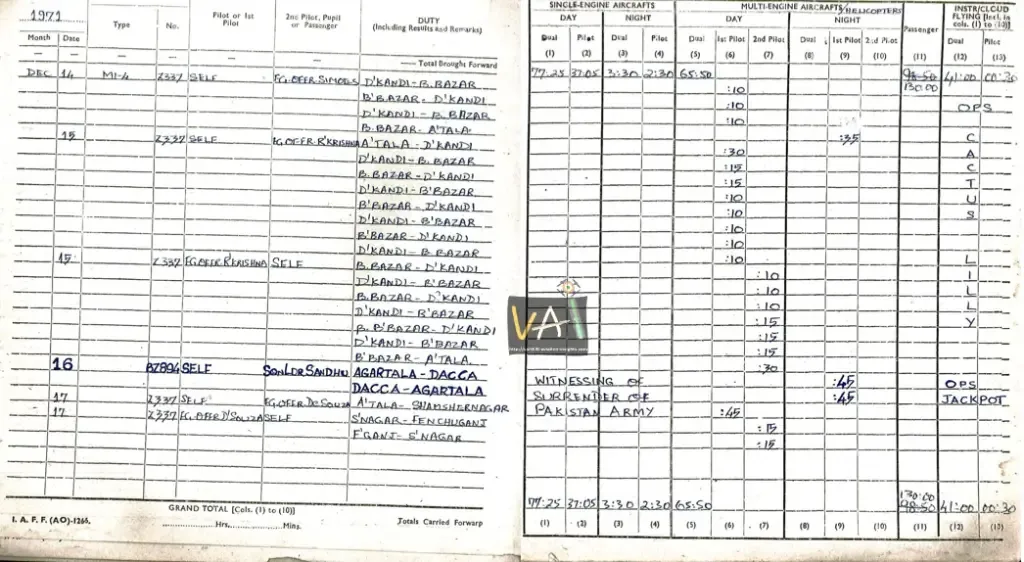 1971
Type
No.
Pilot or 1st Pilot
2nd Pilot, Pupil or Passenger
DUTY
(Including Results and Remarks)
Month Date
— — — — — — —— Total Brought Forward
DEC 14 MI-4 Z337 SELF FG.OFFER SIMODS D'KANDI-B.BAZAR
B'BAZAR - D'KANDI
D'KANDI - B.BAZAR
B.BAZAR - A'TALA
15 Z337 SELF FG.OFFER R'KRISHNA A'TALA - D'KANDI
D'KANDI - B.BAZAR
B.BAZAR - D'KANDI
D'KANDI - B'BAZAR
B'BAZAR - D'KANDI
D'KANDI - B'BAZAR
B'BAZAR - D'KANDI
D'KANDI - B.BAZAR
15 Z337 FG.OFFR R'KRISHNA SELF B.BAZAR - D'KANDI
D'KANDI - B'BAZAR
B.BAZAR - D'KANDI
D'KANDI - B'BAZAR
B'BAZAR - D'KANDI
D'KANDI - B'BAZAR
B'BAZAR - A'TALA
16 BZ894 SELF SQN LDR SANDHU AGARTALA - DACCA
DACCA-AGARTALA
17 Z337 SELF FG.OFFER DeSOUZA A'TALA - SHAMSHERNAGAR
17 Z337 FG.OFFER D'SOUZA SELF S'NAGAR - FENCHUGANJ
F'GANJ - S'NAGAR
GRAND TOTAL [Cols. (1) to (10)]
Hrs. Mins.
Totals Carried Forward
I. A. F. F. (AO)-1266.
SINGLE-ENGINE AIRCRAFTS
MULTI-ENGINE AIRCRAFTS/HELICOPTERS
INSTR/CLOUD FLYING [Incl. in cols. (1) to (10)]
DAY NIGHT DAY NIGHT
Passenger
Dual Pilot Dual Pilot Dual 1st Pilot 2nd Pilot Dual 1st Pilot 2nd Pilot Dual Pilot
(1) (2) (3) (4) (5) (6) (7) (8) (9) (10) (11) (12) (13)
77:25 37:05 3:30 2:30 65:50 98:50 41:00 00:30
130:00
:10
:10 OPS
:10
:35 C
:30 A
:15 C
:15 T
:10 U
:10 S
:10
:10
:10 L
:10 I
:10 L
:10 L
:15 Y
:15
:15
:30
WITNESSING OF :45 OPS
SURRENDER OF :45 JACKPOT
PAKISTAN ARMY :45
:15
:15
130:00
77:25 37:05 3:30 2:30 65:50 98:50 41:00 00:30
(1) (2) (3) (4) (5) (6) (7) (8) (9) (10) (11) (12) (13)
VAI